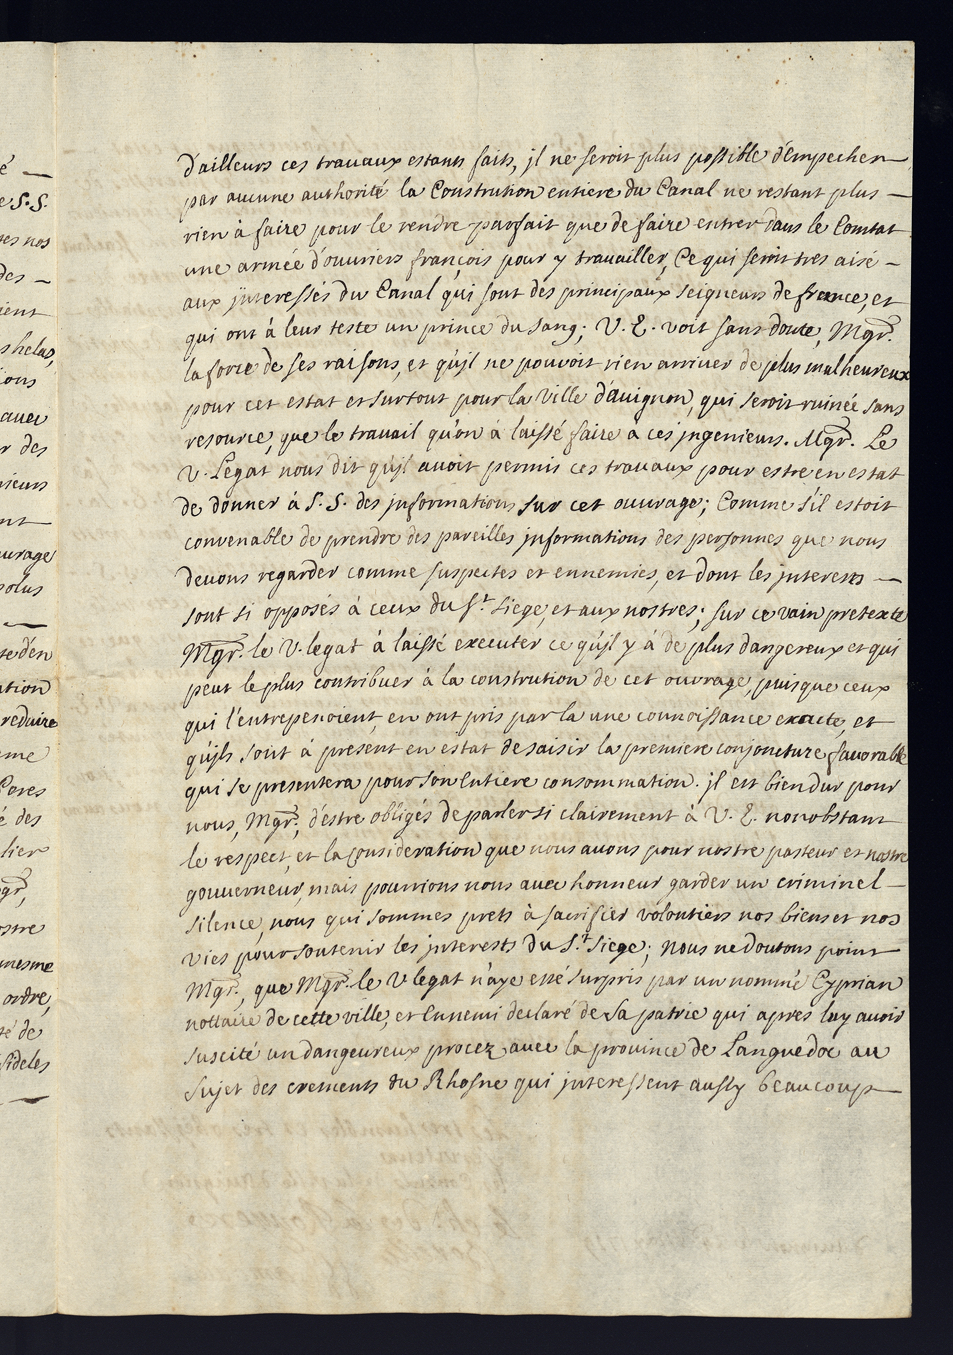 d'ailleurs ces travaux estants faits, jl ne seroit plus possible d'empecher
par aucune authorité la Constrution entiere du Canal ne restant plus —
rien à faire pour le rendre parfait que de faire entrer dans le Comtat
une armée d'ouuriers françois pour y travailler, Ce qui seroit tres aisé —
aux jnteressés du Canal qui sont des principaux seigneurs de france, et
qui ont à leur teste un prince du sang; V. E. voit sans doute, Mgr.
la force de ses raisons, et qu'jl ne pouvoit rien arriver de plus malheureux
pour cet estat et surtout pour la Ville d'auignon, qui seroit ruinée sans
resource, que le travail qu'on à laissé faire a ces jngenieurs. Mgr. Le
V. Legat nous dit qu'jl auoit permis ces travaux pour estre en estat
de donner à S. S. des jnformations sur cet ouurage; Comme s'il estoit
convenable de prendre des pareilles jnformations des personnes que nous
deuons regarder comme suspectes et ennemies, et dont les jnterests —
sont si opposés à ceux du St. siege, et aux nostres; sur ce vain pretexte
Mgr. le V. legat à laissé executer ce qu'jl y à de plus dangereux et qui
peut le plus contribuer à la constrution de cet ouvrage, puisque ceux
qui l'entrepenoient, en ont pris par la une connoissance exacte, et
qu'jls sont à present en estat de saisir la premiere conjoncture favorable
qui se presentera pour son Entiere consommation. jl est bien dur pour
nous, Mgr, d'estre obligés de parler si clairement à V. E. nonobstant
le respect, et la Consideration que nous auons pour nostre pasteur et nostre
gouuerneur, mais pourrions nous auec honneur garder un criminel —
silence, nous qui sommes prets à sacrifier volontiers nos biens et nos
vies pour soutenir les jnterests du St. siege; Nous ne doutons point
Mgr., que Mgr. le V legat n'aye esté surpris par un nommé Cyprian
nottaire de cette ville, et Ennemi declaré de sa patrie qui apres luy auoir
suscité un dangeureux procez auec la province de Languedoc au
sujet des crements du Rhosne qui jnteressent aussy beaucoup —
é —
e S.S.
nes nos
des —
ient
s helas,
ions
auec
r des
nieurs
nt
uurage
plus
te d'en
ation
reduire
me
Peres
é des
lier
Mgr,
ostre
mesme
ordre,
té de
fideles